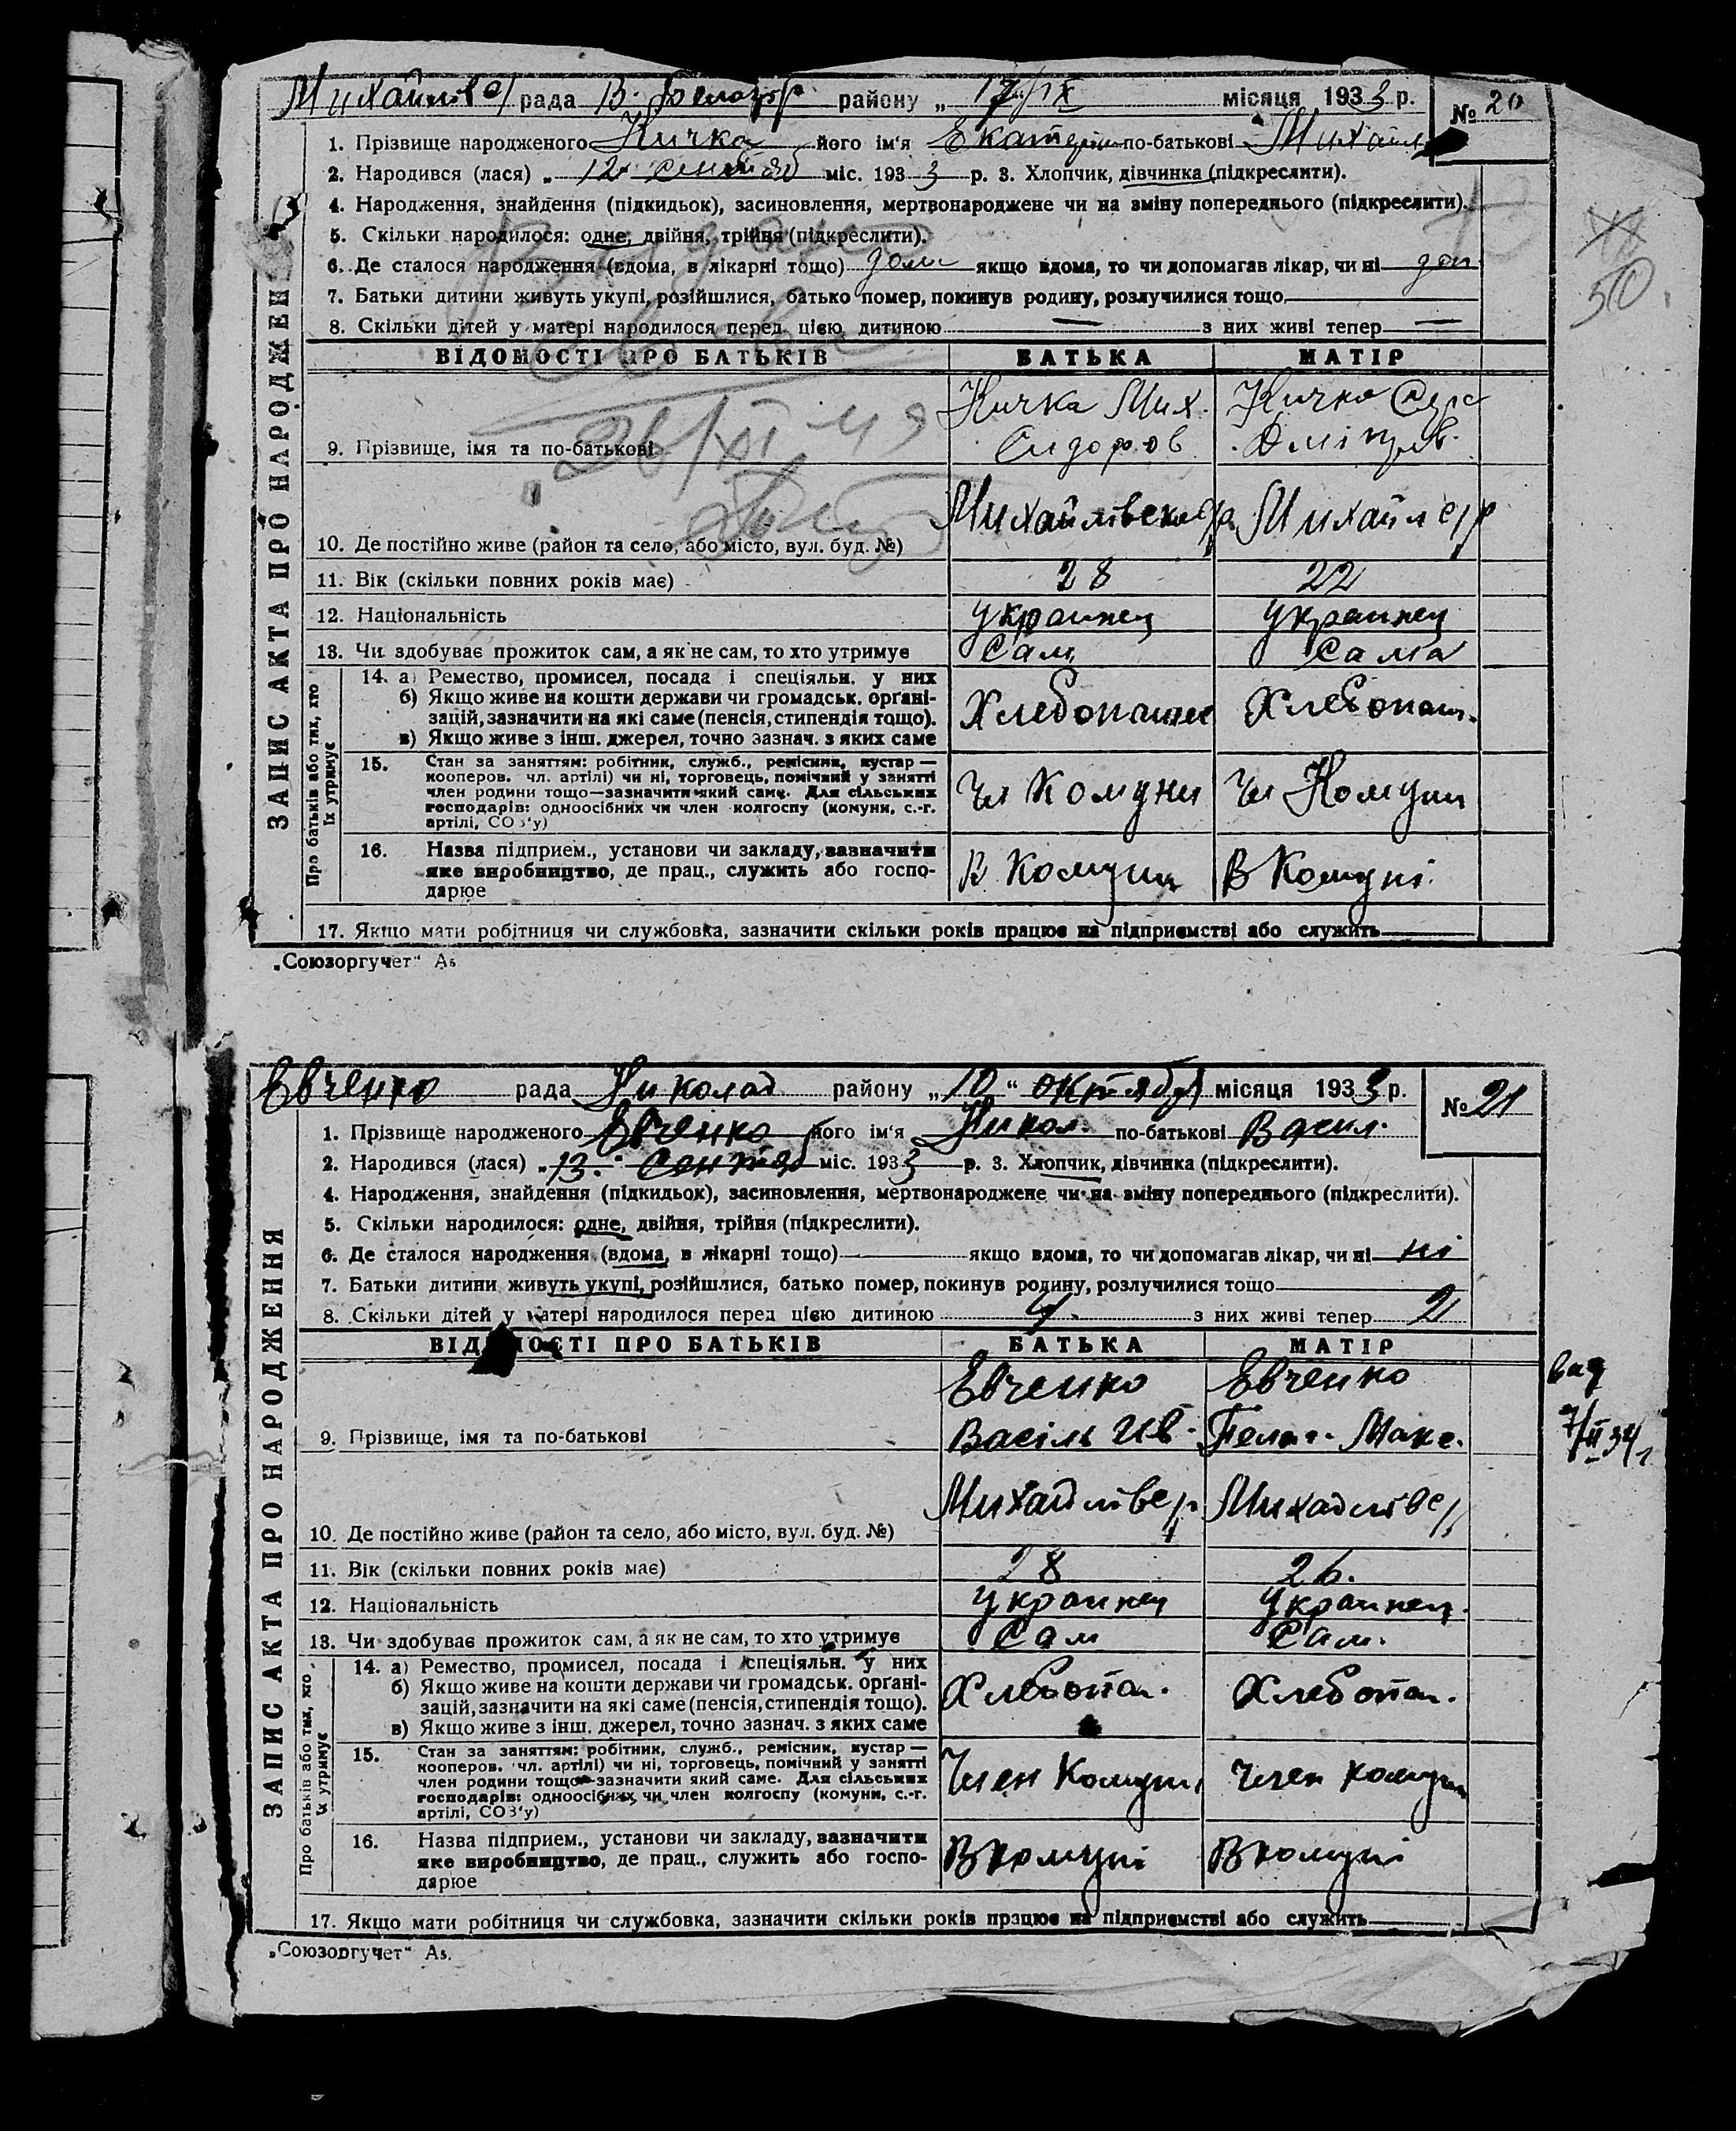 рада В. району „17“ IX місяця 1933 р.
№ 20
ЗАПИС АКТА ПРО НАРОДЖЕННЯ
1. Прізвище народженого Кичка його ім‘я Екатерин по-батькові Михайл
2. Народився (лася) „12 сентяб міс. 1933 р. 3. Хлопчик, дівчинка (підкреслити).
4. Народження, знайдення (підкидьок), засиновлення, мертвонароджене чи на зміну попереднього (підкреслити).
5. Скільки народилося: одне, двійня, трійня (підкреслити).
6. Де сталося народження (вдома, в лікарні тощо) дом якщо вдома, то чи допомагав лікар, чи ні
7. Батьки дитини живуть укупі, розійшлися, батько помер, покинув родину, розлучилися тощо
8. Скільки дітей у матері народилося перед цією дитиною — з них живі тепер —
50
ВІДОМОСТІ ПРО БАТЬКІВ БАТЬКА МАТІР
Кичка Мих. Кичка
9. Прізвище, імя та по-батькові Сидоров
10. Де постійно живе (район та село, або місто, вул. буд. №)
11. Вік (скільки повних років має) 28 22
12. Національність украинец украинец
13. Чи здобуває прожиток сам, а як не сам, то хто утримує Сам Сама
Про батьків або тих, хто їх утримує
14. а) Ремество, промисел, посада і спеціяльн. у них
б) Якщо живе на кошти держави чи громадськ. орґані-
зацій, зазначити на які саме (пенсія, стипендія тощо).
в) Якщо живе з інш. джерел, точно зазнач. з яких саме
Хлебопашец Хлебопаш.
15. Стан за заняттям: робітник, служб., ремісник, кустар —
кооперов. чл. артілі) чи ні, торговець, помічний у занятті
член родини тощо—зазначити який саме. Для сільських
господарів: одноосібних чи член колгоспу (комуни, с.-г.
артілі, СОЗ‘у)
Чл Комуни Чл Комуни
16. Назва підприєм., установи чи закладу, зазначити
яке виробництво, де прац., служить або госпо-
дарює
В Комуни В Комуні
17. Якщо мати робітниця чи службовка, зазначити скільки років працює на підприємстві або служить
„Союзоргучет“ А5
Евченко рада Николай району „10“ октября місяця 1933 р.
№ 21
ЗАПИС АКТА ПРО НАРОДЖЕННЯ
1. Прізвище народженого Евченко його ім‘я Никол. по-батькові Васил.
2. Народився (лася) „13. Сентяб міс. 1933 р. 3. Хлопчик, дівчинка (підкреслити).
4. Народження, знайдення (підкидьок), засиновлення, мертвонароджене чи на зміну попереднього (підкреслити).
5. Скільки народилося: одне, двійня, трійня (підкреслити).
6. Де сталося народження (вдома, в лікарні тощо) якщо вдома, то чи допомагав лікар, чи ні ні
7. Батьки дитини живуть укупі, розійшлися, батько помер, покинув родину, розлучилися тощо
8. Скільки дітей у матері народилося перед цією дитиною 4 з них живі тепер 2
ВІДОМОСТІ ПРО БАТЬКІВ БАТЬКА МАТІР
Евченко Евченко
9. Прізвище, імя та по-батькові Васіль Ив. Пелаг. Макс.
7/II 34 г.
10. Де постійно живе (район та село, або місто, вул. буд. №)
11. Вік (скільки повних років має) 28 26.
12. Національність украинец украинец.
13. Чи здобуває прожиток сам, а як не сам, то хто утримує Сам Сам.
Про батьків або тих, хто їх утримує
14. а) Ремество, промисел, посада і спеціяльн. у них
б) Якщо живе на кошти держави чи громадськ. орґані-
зацій, зазначити на які саме (пенсія, стипендія тощо).
в) Якщо живе з інш. джерел, точно зазнач. з яких саме
Хлебопаш. Хлебопаш.
15. Стан за заняттям: робітник, служб., ремісник, кустар —
кооперов. чл. артілі) чи ні, торговець, помічний у занятті
член родини тощо—зазначити який саме. Для сільських
господарів: одноосібних чи член колгоспу (комуни, с.-г.
артілі, СОЗ‘у)
Член Комуни член комуни
16. Назва підприєм., установи чи закладу, зазначити
яке виробництво, де прац., служить або госпо-
дарює
В комуні В комуні
17. Якщо мати робітниця чи службовка, зазначити скільки років працює на підприємстві або служить
„Союзоргучет“ А5.